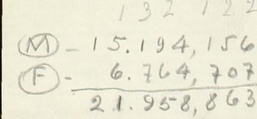 132 122
M - 15.194,156
F - 6.764,707
21.958,863